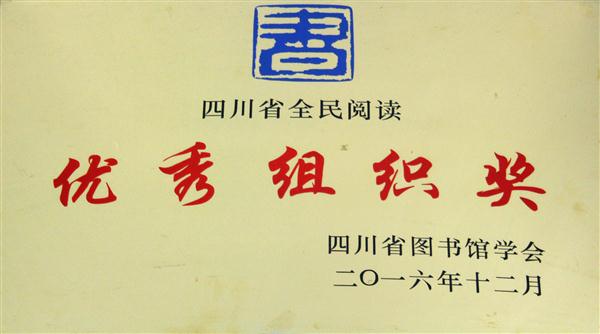 書
四川省全民阅读
优秀组织奖
四川省图书馆学会
二〇一六年十二月